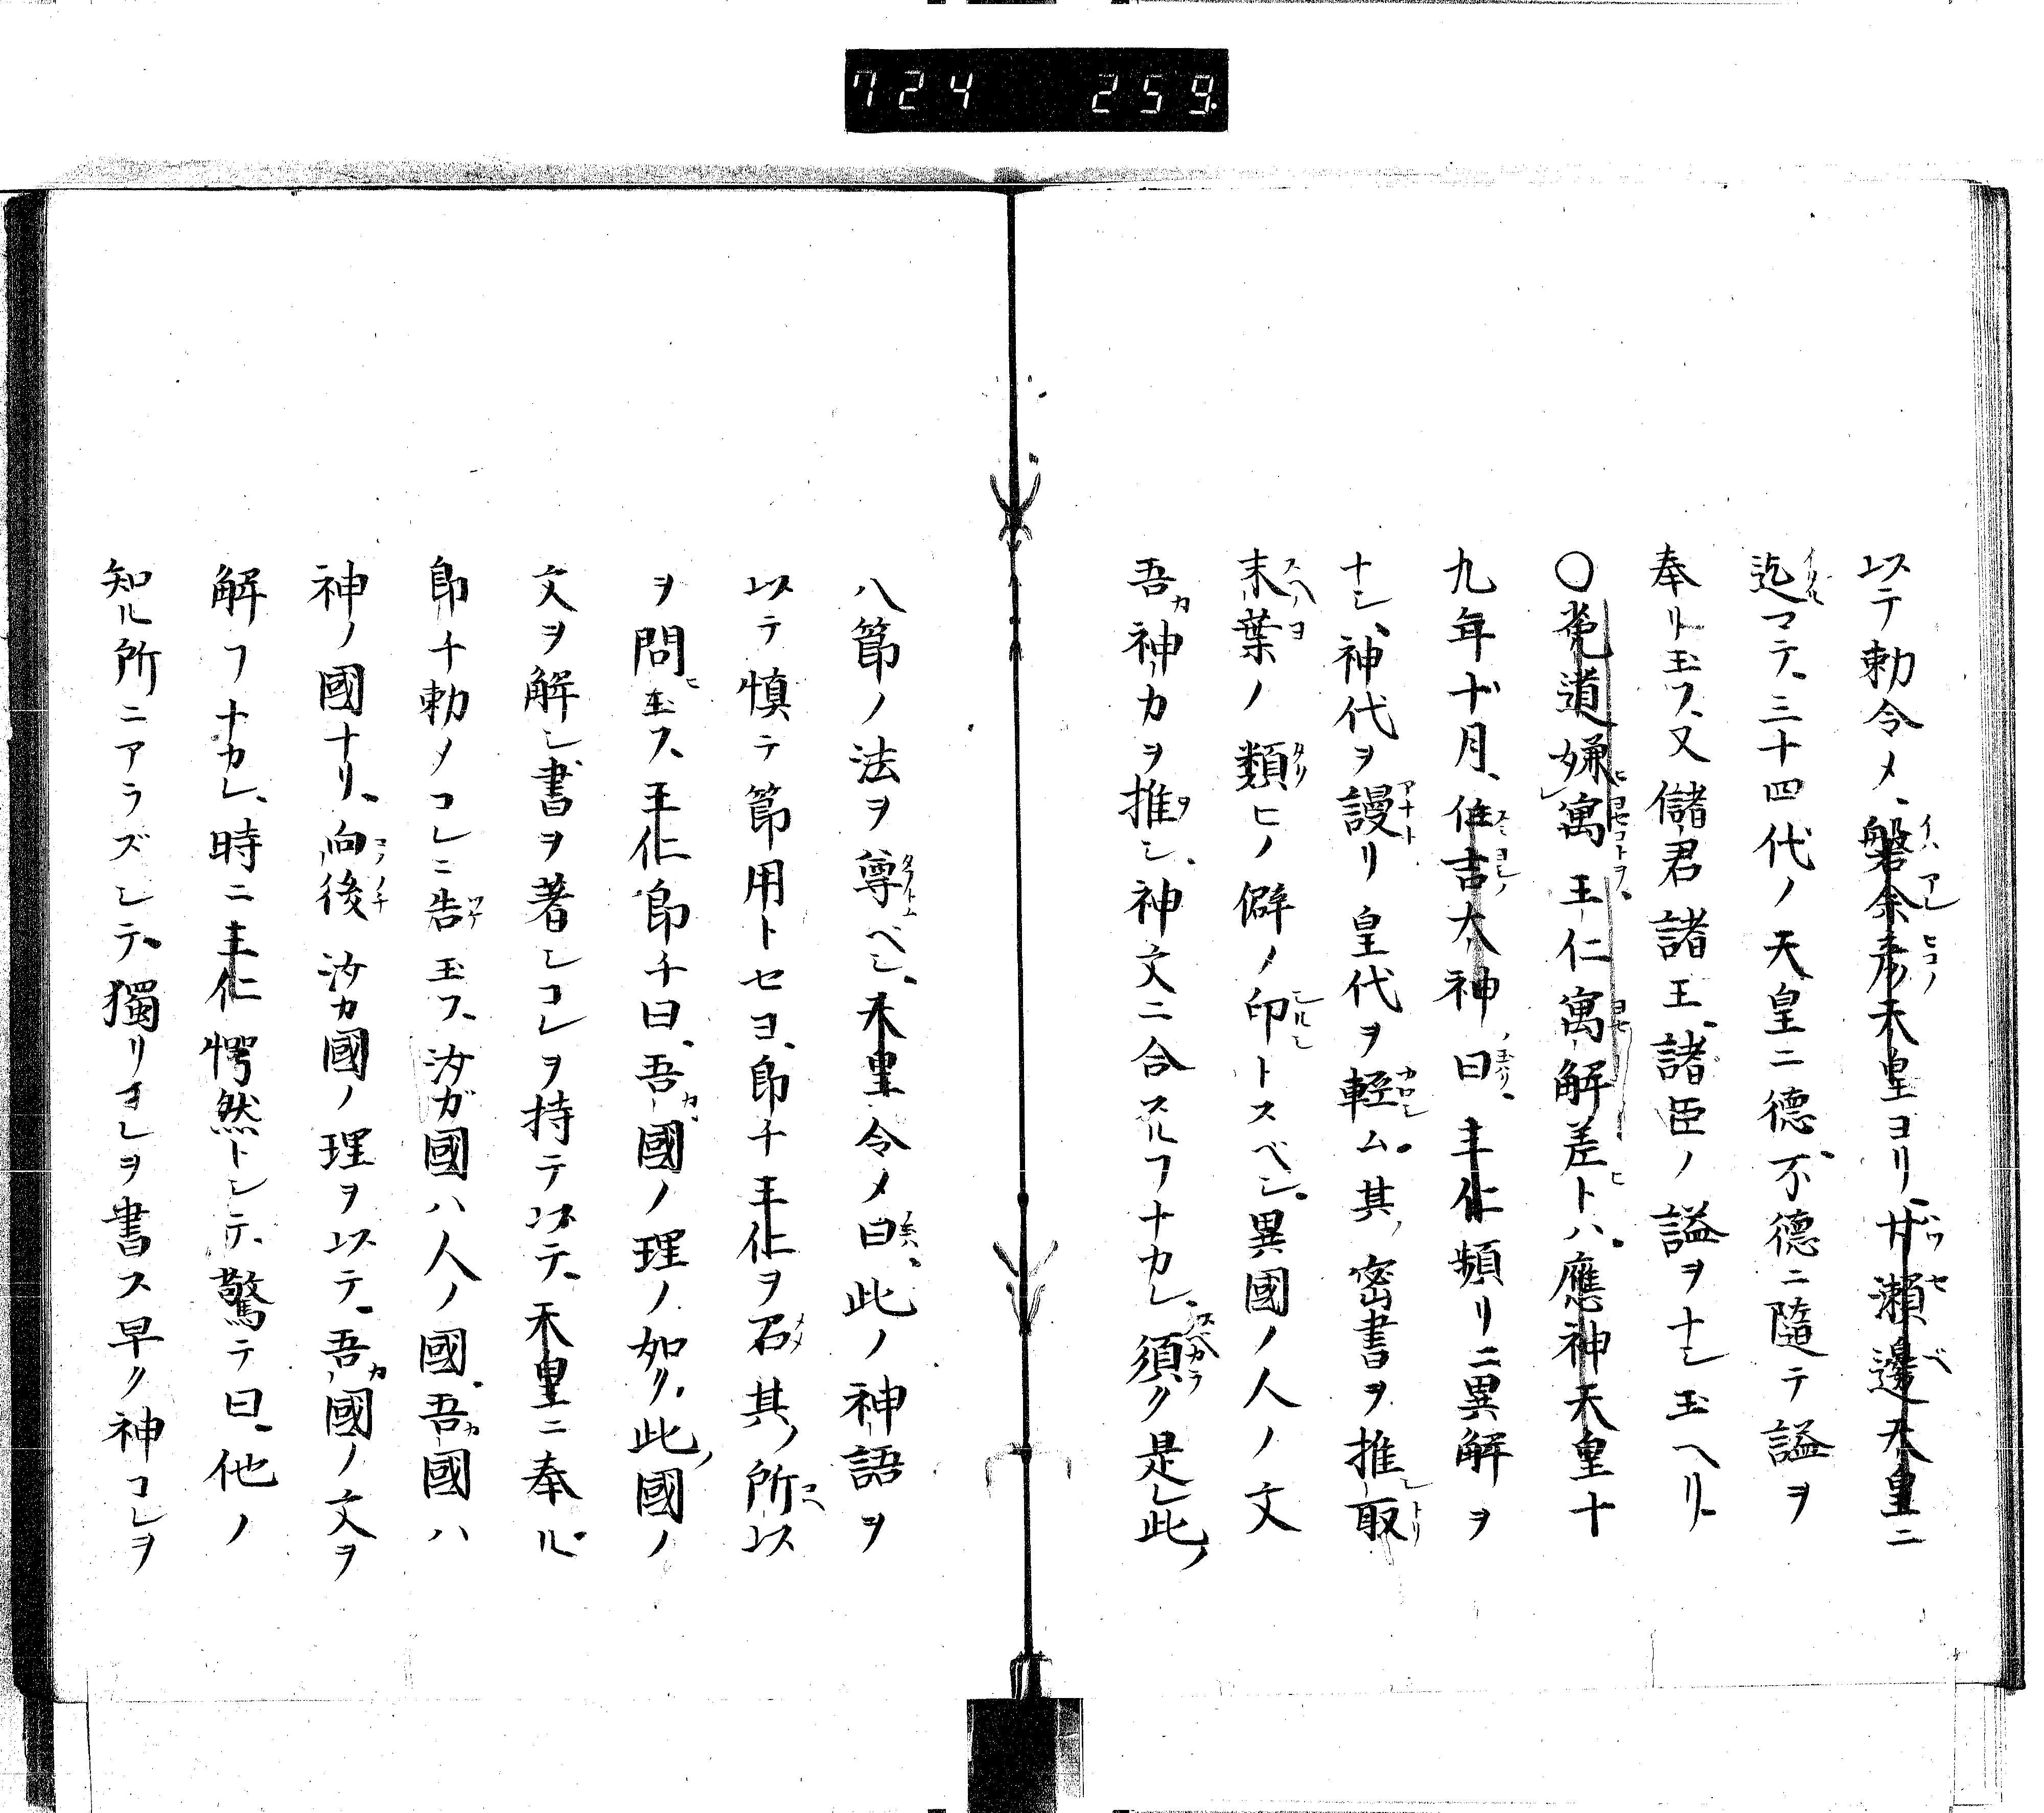 724 259
以テ勅令メ、磐余彦天皇ヨリ、廿瀬邊天皇ニ
迄マテ、三十四代ノ天皇ニ德、不德ニ隨テ謚ヲ
奉リ玉フ、又儲君諸王、諸臣ノ謚ヲナシ玉ヘリ、
〇菟道嫌寓王仁寓解差トハ、應神天皇十
九年十月、住吉大神ノ曰、王仁頻リニ異解ヲ
ナシ、神代ヲ謾リ皇代ヲ輕ム。其ノ密書ヲ推取
末葉ノ類ヒノ僻ノ印トスベシ。異國ノ人ノ文
吾カ神カヲ推シ、神文ニ合スルフナカレ、須ク是レ此ノ
八節ノ法ヲ尊ベシ、天皇令メ曰、此ノ神語ヲ
以テ慎テ節用トセヨ、即チ王仁ヲ召其ノ所以
ヲ問玉フ、王仁即チ曰、吾カ國ノ理ノ如リ、此ノ國ノ
文ヲ解シ書ヲ著シコレヲ持テ以テ、天皇ニ奉ル
即チ勅メコレニ告玉フ、汝ガ國ハ人ノ國、吾カ國ハ
神ノ國ナリ、向後汝カ國ノ理ヲ以テ、吾カ國ノ文ヲ
解フナカレ、時ニ王仁愕然トシテ、驚テ曰、他ノ
知ル所ニアラズシテ、獨リコレヲ書ス早ク神コレヲ